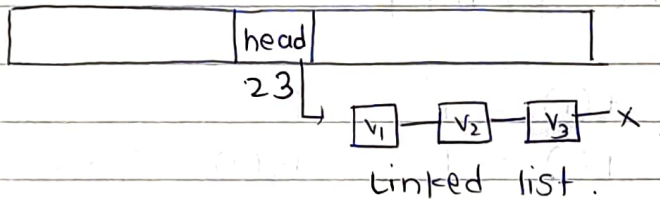 head
23
V₁ V₂ V₃ X
Linked list.